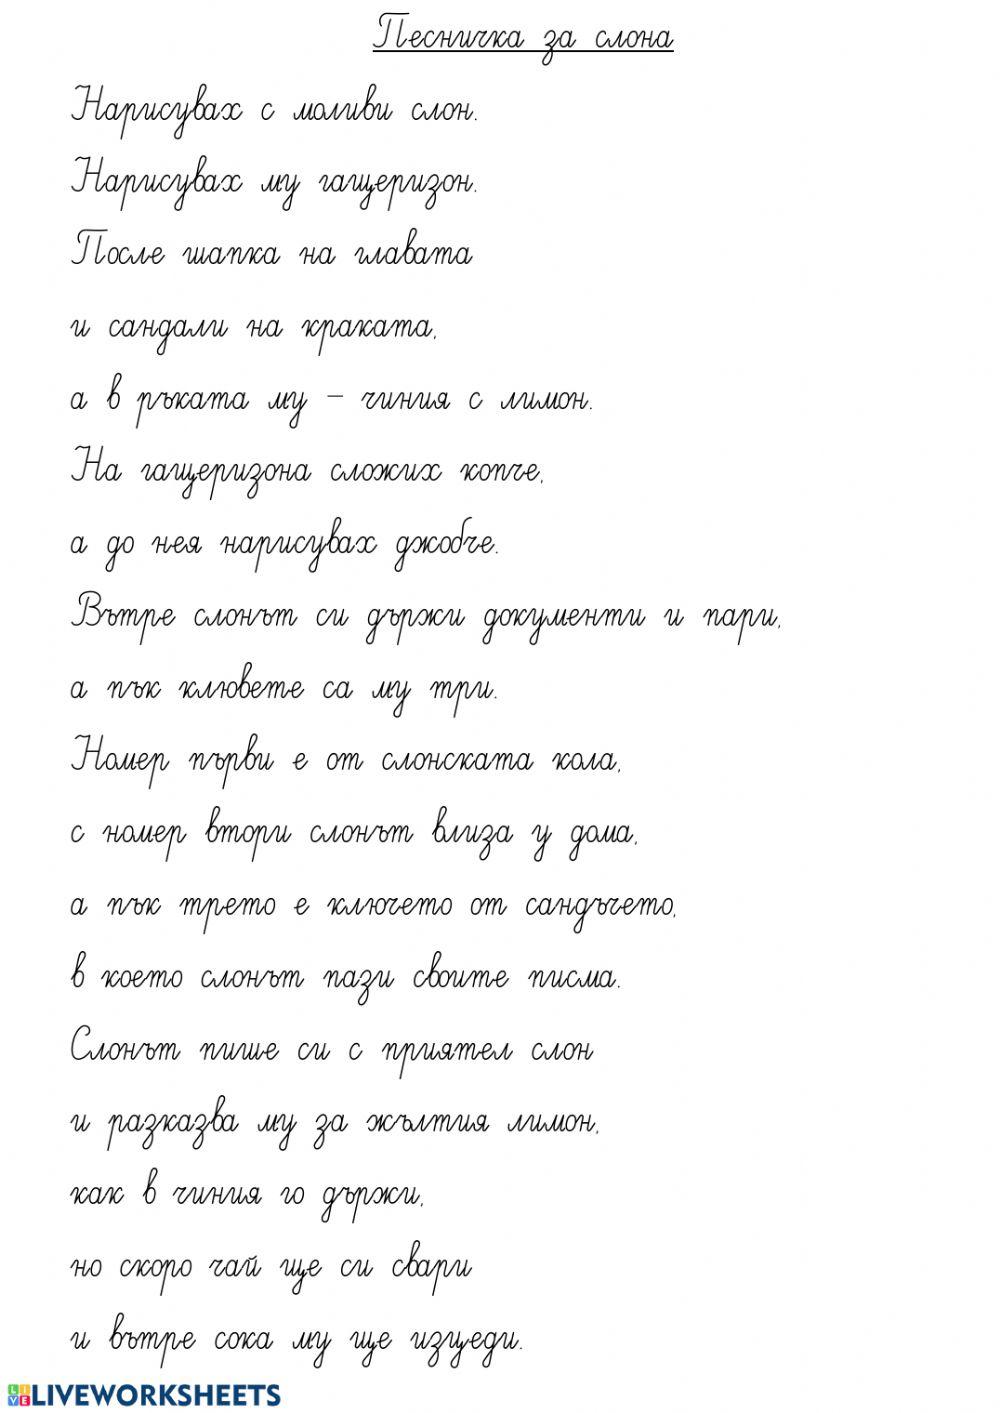 Песничка за слона
Нарисувах с моливи слон.
Нарисувах му гащеризон.
После шапка на главата
и сандали на краката,
а в ръката му – чиния с лимон.
На гащеризона сложих копче,
а до нея нарисувах джобче.
Вътре слонът си държи документи и пари,
а пък клювете са му три.
Номер първи е от слонската кола,
с номер втори слонът влиза у дома,
а пък трето е ключето от сандъчето,
в което слонът пази своите писма.
Слонът пише си с приятел слон
и разказва му за жълтия лимон,
как в чиния го държи,
но скоро чай ще си свари
и вътре сока му ще изцеди.
LIVEWORKSHEETS